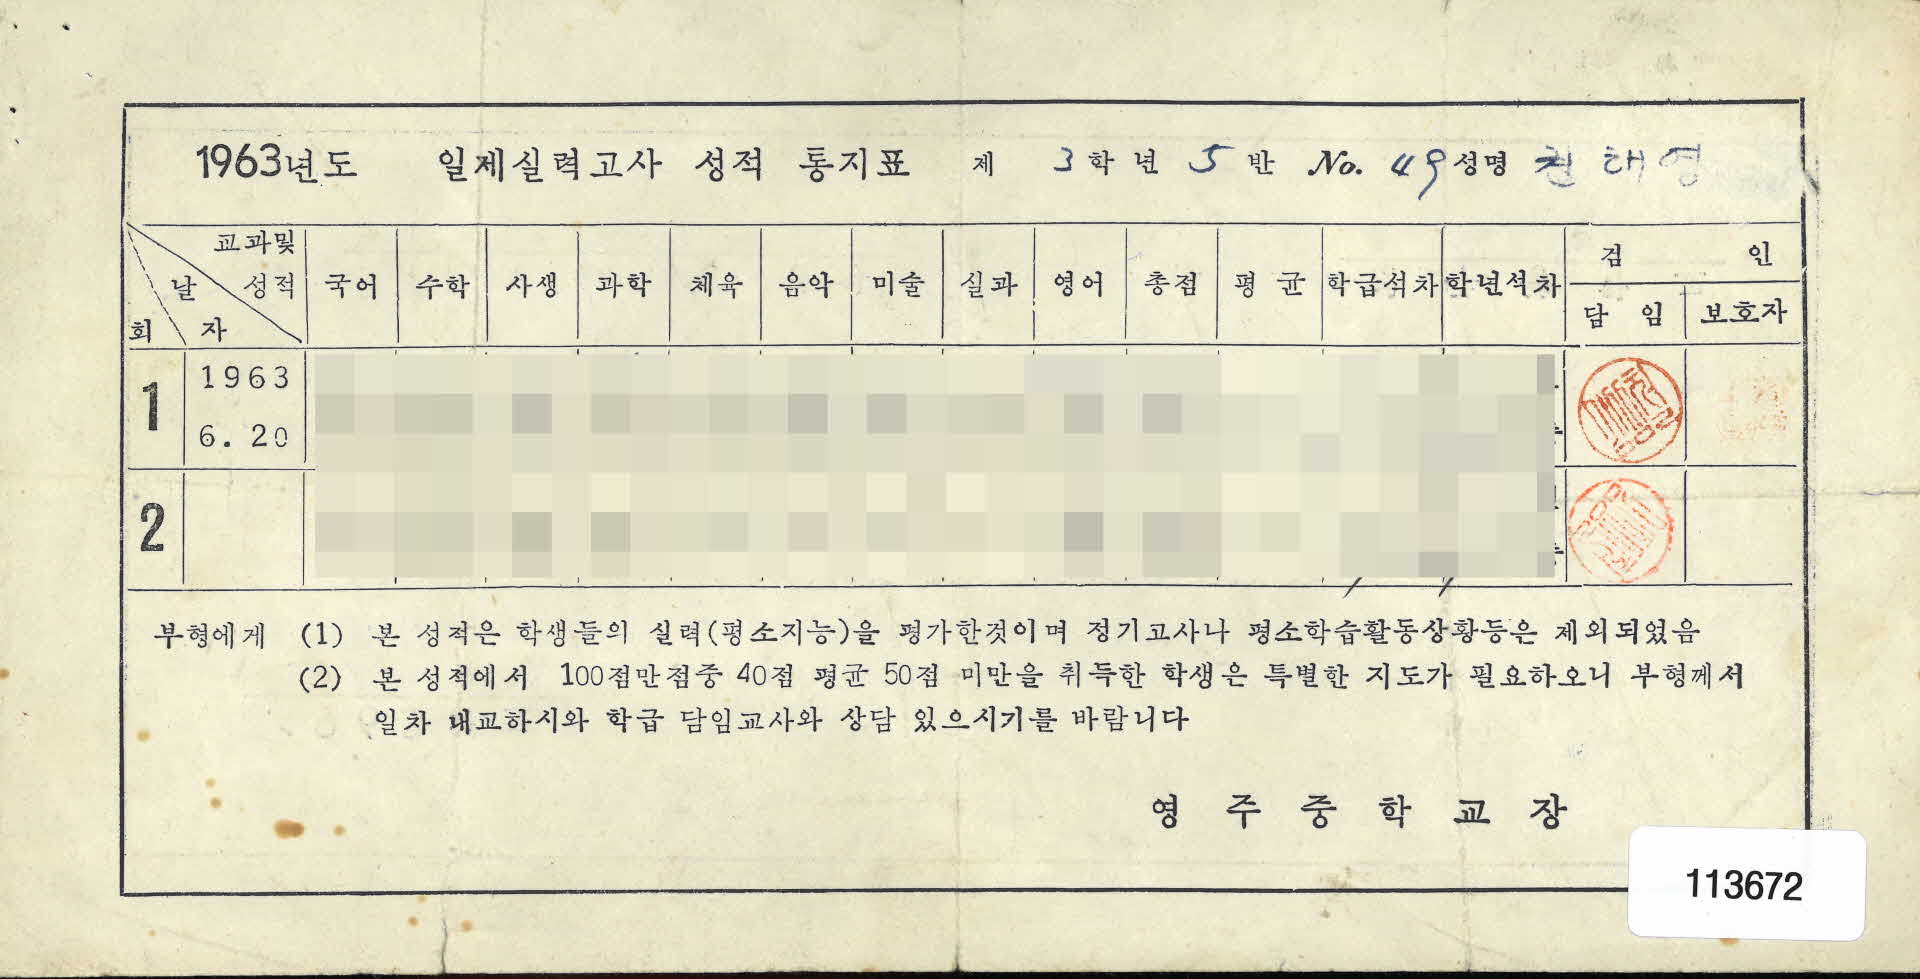 1963년도 일제실력고사 성적 통지표 제 3학년 5반 No. 49 성명 권해영
교과및 성적 날자 회 국어 수학 사생 과학 체육 음악 미술 실과 영어 총점 평균 학급석차 학년석차 검인 담임 보호자
1 1963 6.20
2
부형에게 (1) 본 성적은 학생들의 실력(평소지능)을 평가한것이며 정기고사나 평소학습활동상황등은 제외되었음
(2) 본 성적에서 100점만점중 40점 평균 50점 미만을 취득한 학생은 특별한 지도가 필요하오니 부형께서
일차 내교하시와 학급 담임교사와 상담 있으시기를 바람니다
영주중학교장
113672